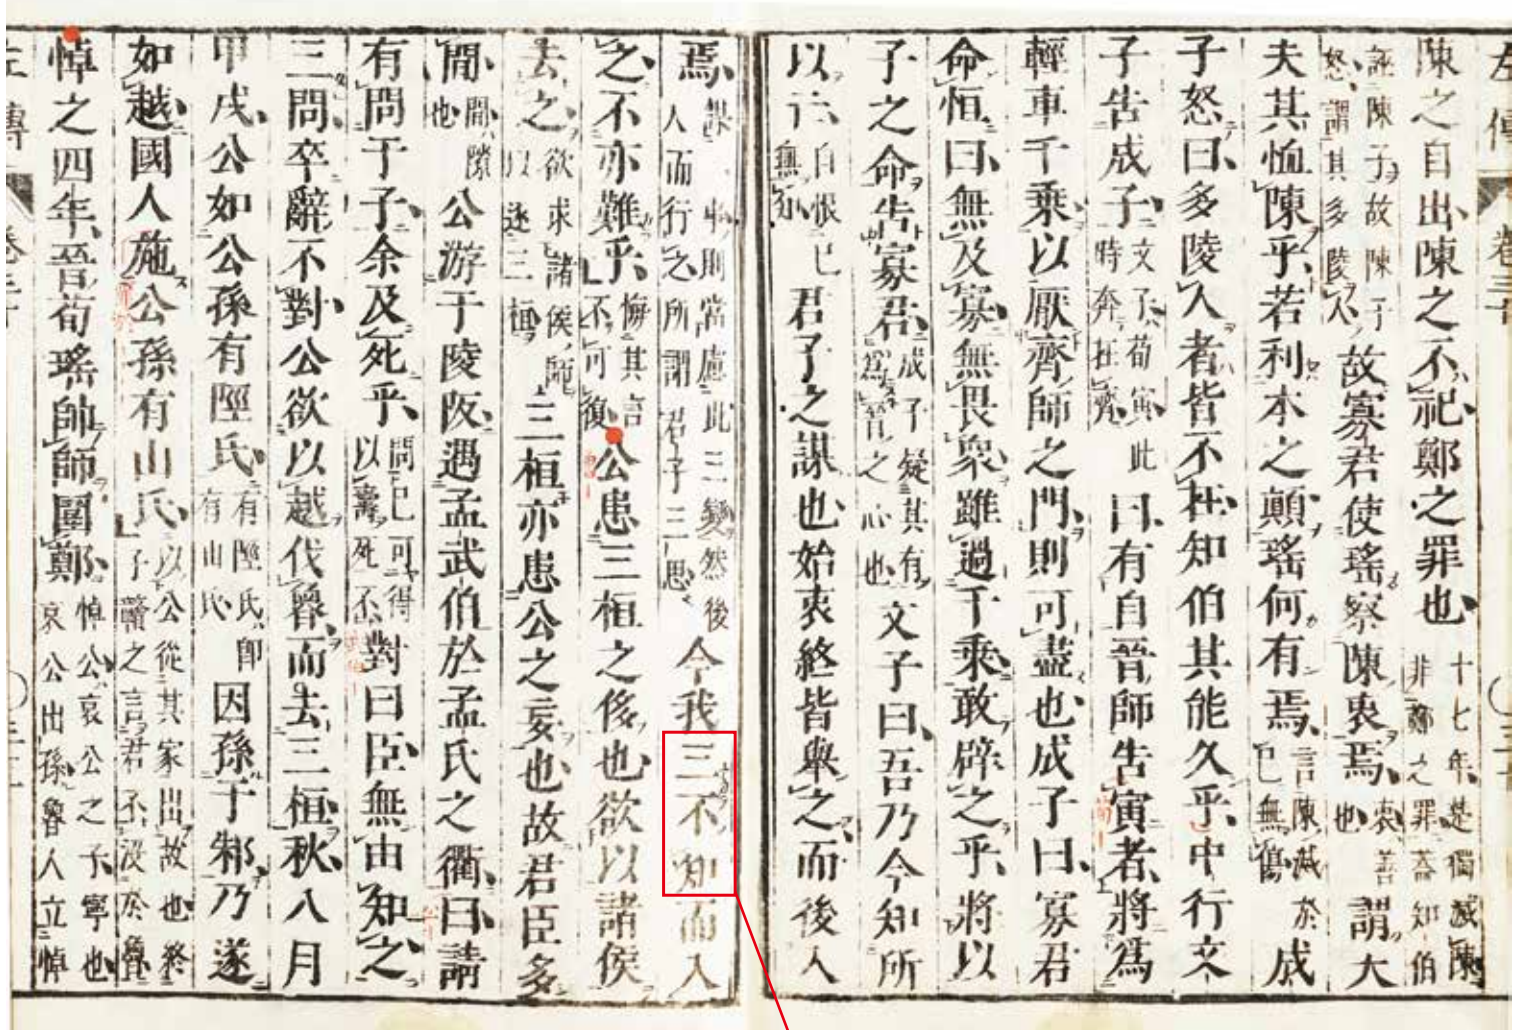 左傳 卷三十
陳之自出陳之不祀鄭之罪也十七年楚獨滅陳非鄭之罪蓋知伯
誣陳子故陳子怒謂其多陵人故寡君使瑤察陳衷焉衷善也謂大
夫其恤陳乎若利本之顛瑤何有焉言陳滅於已無傷成
子怒曰多陵人者皆不在知伯其能久乎中行文
子告成子文子荀寅此時奔在齊曰有自晉師告寅者將爲
輕車千乗以厭齊師之門則可盡也成子曰寡君
命恒曰無及寡無畏衆雖過千乗敢辟之乎將以
子之命告寡君成子疑其有爲晉之心也文子曰吾乃今知所
以亡自恨已無知君子之謀也始衷終皆舉之而後入
焉謀一事則當慮此三變然後人而行之所謂君子三思今我三不知而入
之不亦難乎悔其言不可復公患三桓之侈也欲以諸侯
去之欲求諸侯師以逐三桓三桓亦患公之妄也故君臣多
間間隙也公游于陵阪遇孟武伯於孟氏之衢曰請
有問于子余及死乎問已可得以壽死不對曰臣無由知之
三問卒辭不對公欲以越伐魯而去三桓秋八月
甲戌公如公孫有陘氏有陘氏即有山氏因孫于邾乃遂
如越國人施公孫有山氏以公從其家出故也終子贛之言君不沒於魯
悼之四年晉荀瑤帥師圍鄭悼公哀公之子寧也哀公出孫魯人立悼
左傳 卷三十